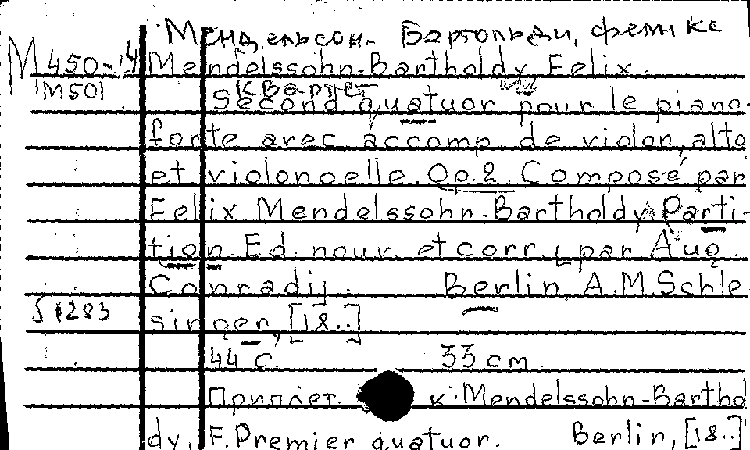 Мендельсон-Бартольди, Феликс
М 450-14 Mendelssohn-Bartholdy Felix.
М501 Квартет
Second quatuor pour le piano-
forte avec accomp. de violon, alto
et violoncelle. Op. 2. Composé par
Felix Mendelssohn-Bartholdy Parti-
tion Ed. nouv. et corr. par Aug.
Conradij. Berlin A.M. Schle-
51283 singer, [18..]
44 с. 33 cm
Приплет. к: Mendelssohn-Bartho
dy, F. Premier quatuor. Berlin, [18..]